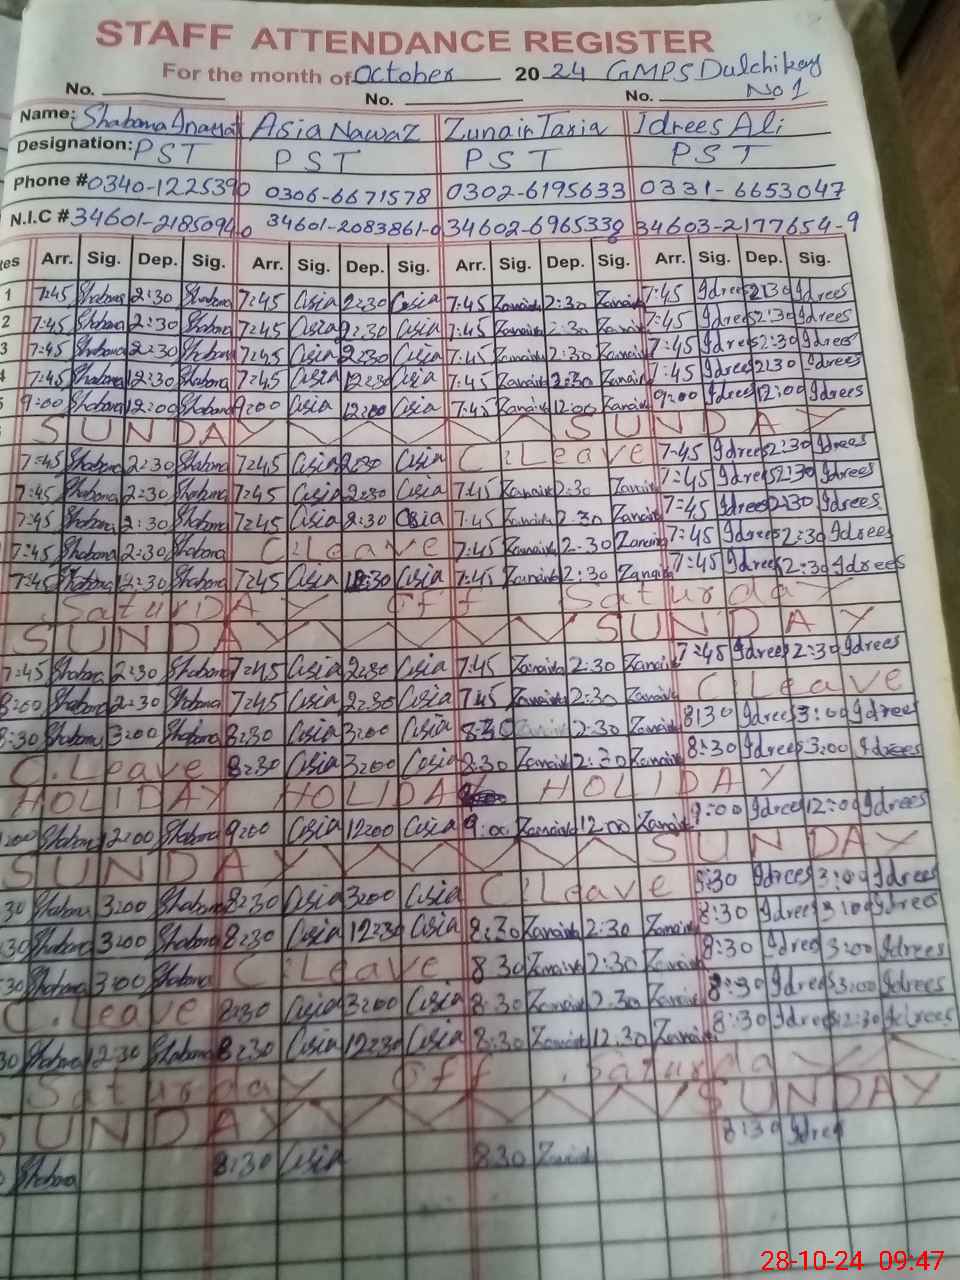 STAFF ATTENDANCE REGISTER
For the month of October 2024 GMPS Dulchikay
No. No. No. No 1
Name: Shabana Asia Nawaz Zunair Idrees Ali
Designation: PST PST PST PST
Phone # 0340-1225390 0306-6671578 0302-6195633 0331-6653047
N.I.C # 34601-2185094 34601-2083861-0 34602-6965338 34603-2177654-9
Arr. Sig. Dep. Sig. Arr. Sig. Dep. Sig. Arr. Sig. Dep. Sig. Arr. Sig. Dep. Sig.
1 7:45 Shabana 2:30 Shabana 7:45 Asia 2:30 Asia 7:45 Zunaira 2:30 Zunaira 7:45 Idrees 2:30 Idrees
2 7:45 Shabana 2:30 Shabana 7:45 Asia 2:30 Asia 7:45 Zunaira 2:30 Zunaira 7:45 Idrees 2:30 Idrees
3 7:45 Shabana 2:30 Shabana 7:45 Asia 2:30 Asia 7:45 Zunaira 2:30 Zunaira 7:45 Idrees 2:30 Idrees
7:45 Shabana 2:30 Shabana 7:45 Asia 12:30 Asia 7:45 Zunaira 2:30 Zunaira 7:45 Idrees 2:30 Idrees
9:00 Shabana 12:00 Shabana 9:00 Asia 12:00 Asia 7:45 Zunaira 12:00 Zunaira 9:00 Idrees 12:00 Idrees
SUNDAY SUNDAY
7:45 Shabana 2:30 Shabana 7:45 Asia 2:30 Asia C.Leave 7:45 Idrees 2:30 Idrees
7:45 Shabana 2:30 Shabana 7:45 Asia 2:30 Asia 7:45 Zunaira 2:30 Zunaira 7:45 Idrees 2:30 Idrees
7:45 Shabana 2:30 Shabana 7:45 Asia 2:30 Asia 7:45 Zunaira 2:30 Zunaira 7:45 Idrees 2:30 Idrees
7:45 Shabana 2:30 Shabana C.Leave 7:45 Zunaira 2:30 Zunaira 7:45 Idrees 2:30 Idrees
7:45 Shabana 12:30 Shabana 7:45 Asia 12:30 Asia 7:45 Zunaira 2:30 Zunaira 7:45 Idrees 2:30 Idrees
SaturDAY Off Saturday
SUNDAY SUNDAY
7:45 Shabana 2:30 Shabana 7:45 Asia 2:30 Asia 7:45 Zunaira 2:30 Zunaira 7:45 Idrees 2:30 Idrees
8:00 Shabana 2:30 Shabana 7:45 Asia 2:30 Asia 7:45 Zunaira 2:30 Zunaira C.Leave
8:30 Shabana 3:00 Shabana 8:30 Asia 3:00 Asia 8:30 2:30 Zunaira 8:30 Idrees 3:00 Idrees
C.Leave 8:30 Asia 3:00 Asia 8:30 Zunaira 2:30 Zunaira 8:30 Idrees 3:00 Idrees
HOLIDAY HOLIDA HOLIDAY
:00 Shabana 12:00 Shabana 9:00 Asia 12:00 Asia 9:00 Zunaira 12:00 Zunaira 9:00 Idrees 12:00 Idrees
SUNDAY SUNDAY
30 Shabana 3:00 Shabana 8:30 Asia 3:00 Asia C.Leave 8:30 Idrees 3:00 Idrees
:30 Shabana 3:00 Shabana 8:30 Asia 12:30 Asia 8:30 Zunaira 2:30 Zunaira 8:30 Idrees 3:00 Idrees
:30 Shabana 3:00 Shabana C.Leave 8:30 Zunaira 2:30 Zunaira 8:30 Idrees 3:00 Idrees
C.Leave 8:30 Asia 3:00 Asia 8:30 Zunaira 2:30 Zunaira 8:30 Idrees 3:00 Idrees
30 Shabana 12:30 Shabana 8:30 Asia 12:30 Asia 8:30 Zunaira 12:30 Zunaira 8:30 Idrees 12:30 Idrees
Saturday Off Saturday
SUNDAY SUNDAY
Shabana 8:30 Asia 8:30 8:30 Idrees
28-10-24 09:47